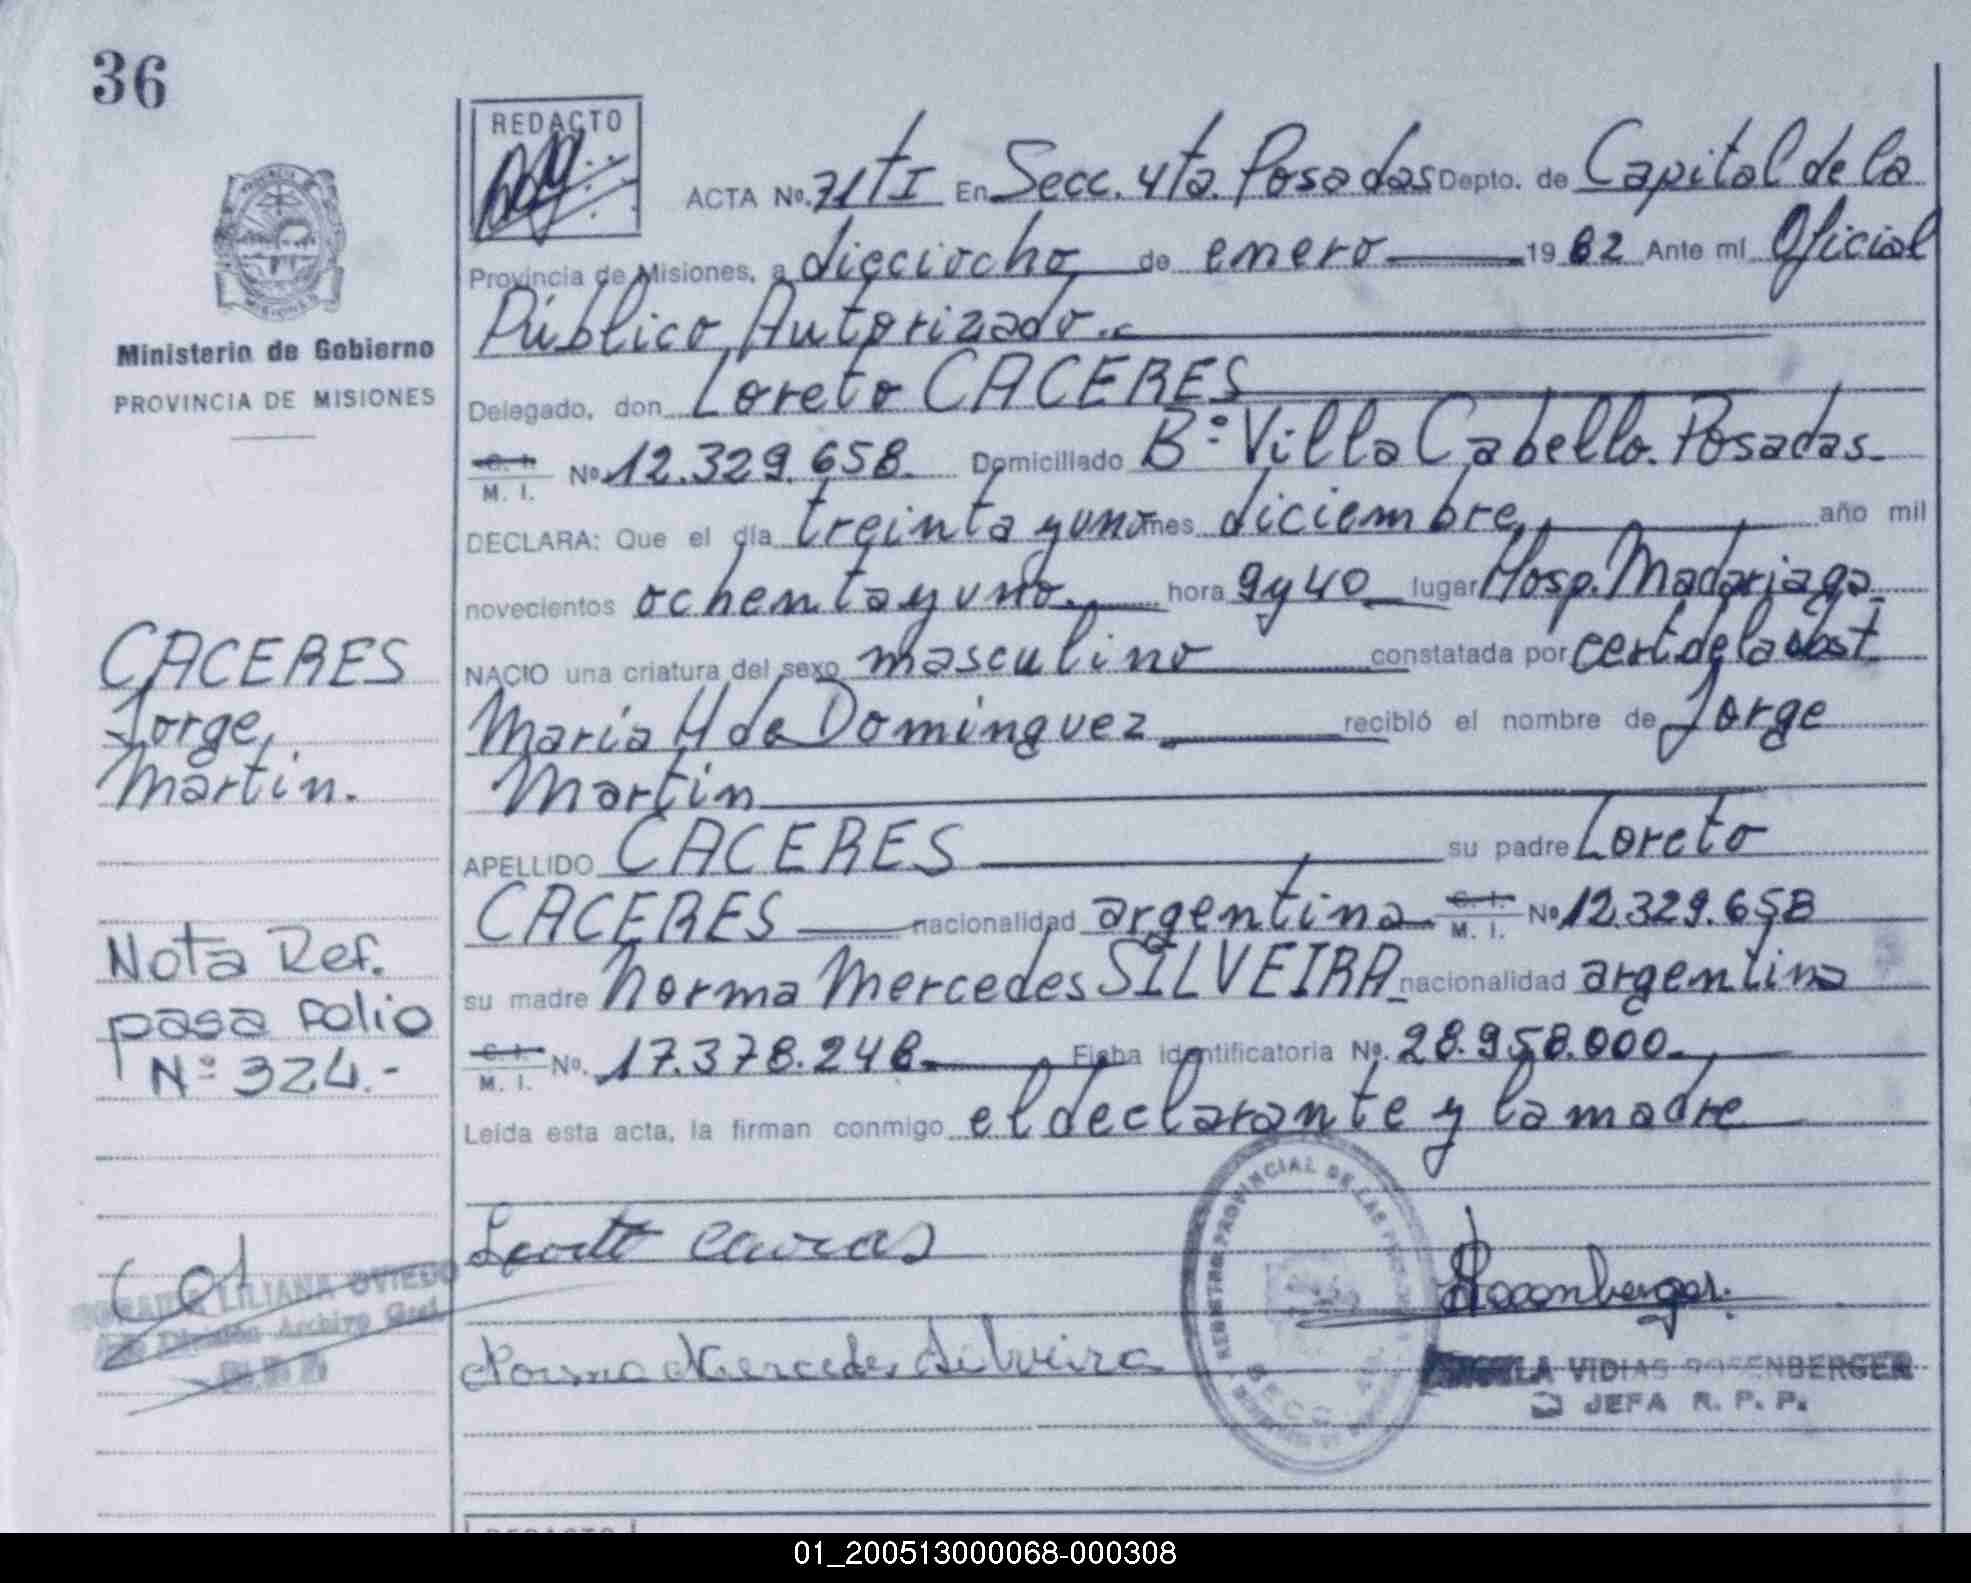 36
REDACTO
ACTA No. 71 t I En Secc. 4ta. Posadas Depto. de Capital de la
Provincia de Misiones, a dieciocho de enero 19 82 Ante mí Oficial
Público Autorizado.
Delegado, don Loreto CACERES
C. I.
M. I.
No 12.329.658. Domiciliado B° Villa Cabello. Posadas.
DECLARA: Que el día treinta y uno mes diciembre, año mil
novecientos ochenta y uno. hora 9 y 40 lugar Hosp. Madariaga.
NACIO una criatura del sexo masculino constatada por cert de la obst
María H de Dominguez recibió el nombre de Jorge
Martin
APELLIDO CACERES su padre Loreto
CACERES nacionalidad argentina C. I. M. I. No 12.329.658
su madre Norma Mercedes SILVEIRA nacionalidad argentina
C. I.
M. I.
No. 17.378.248 Ficha identificatoria No. 28.958.000
Leída esta acta, la firman conmigo el declarante y la madre
Ministerio de Gobierno
PROVINCIA DE MISIONES
CACERES
Jorge
Martin.
Nota Ref.
pasa folio
N° 324.-
LILIANA OVIEDO
División Archivo Gral
Norma Mercedes Silveira
REGISTRO PROVINCIAL DE LAS
SECC.
VIDIAS ROSENBERGER
JEFA R. P. P.
REDACTO
01_200513000068-000308